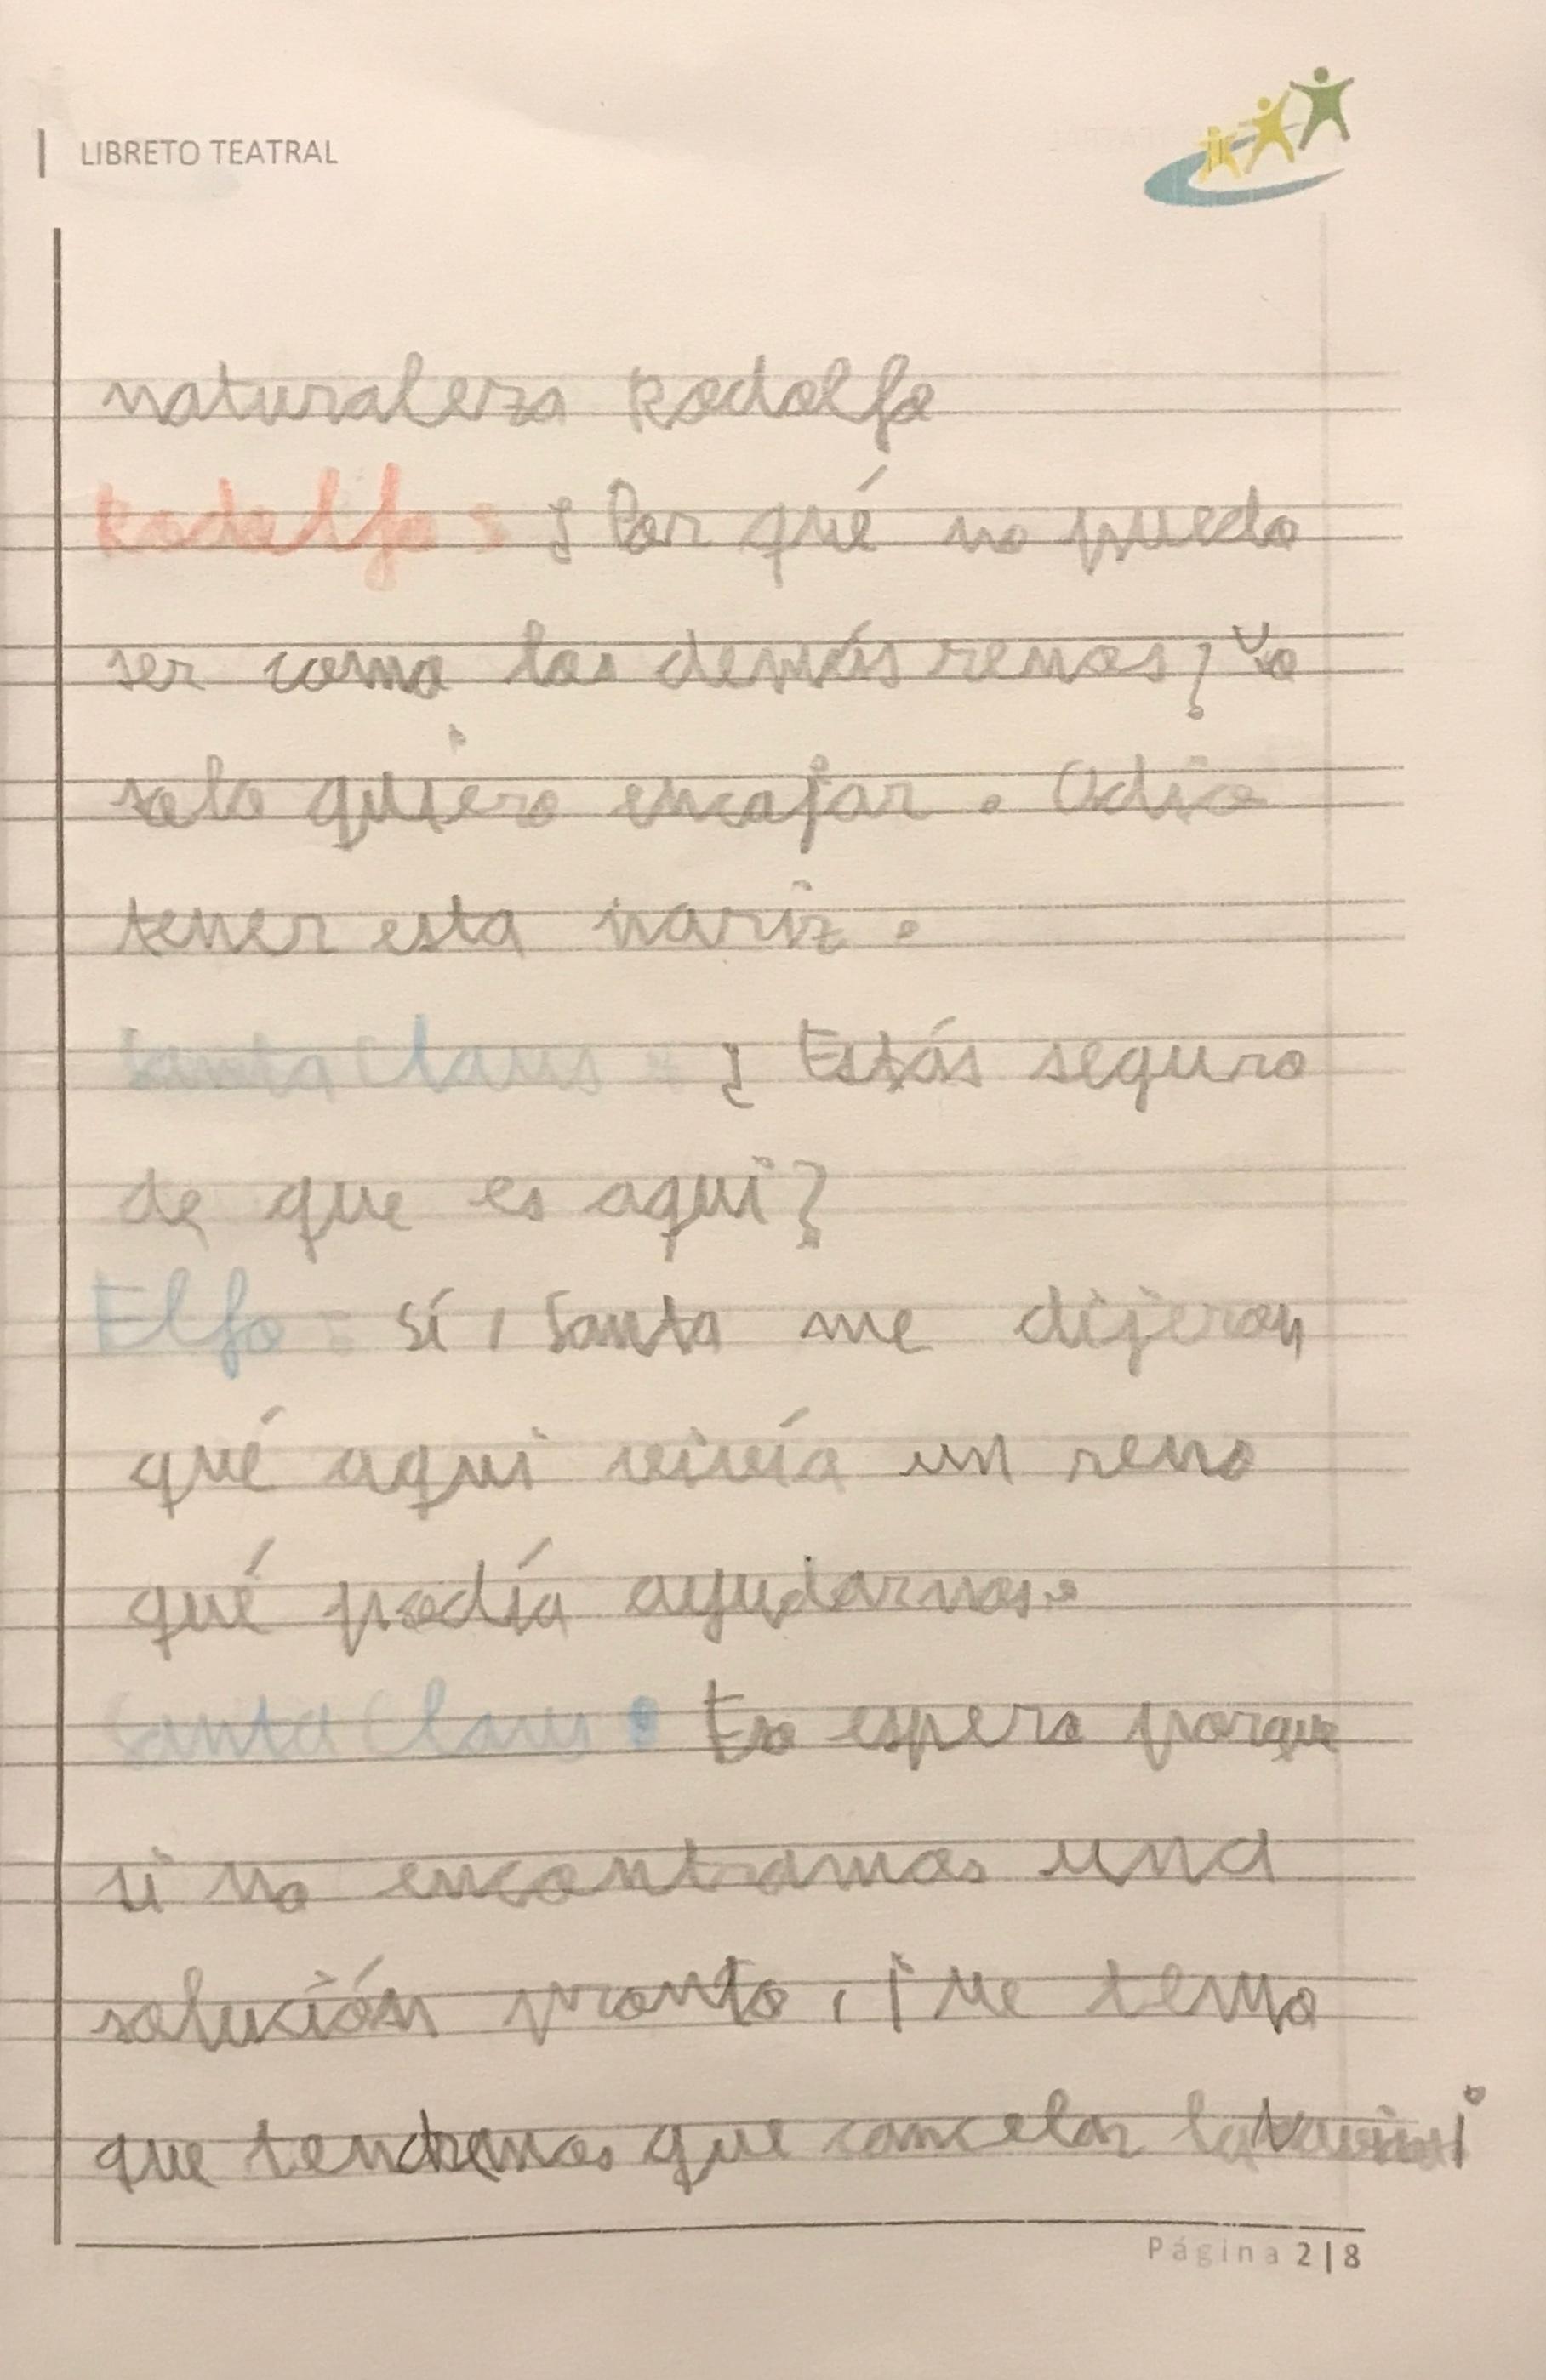 LIBRETO TEATRAL
naturaleza Rodolfo
Rodolfo: ¿Por qué no puedo
ser como los demás renos? Yo
solo quiero encajar. Odio
tener esta nariz.
Santa Claus: ¿Estás seguro
de que es aqui?
Elfo: Sí, Santa me dijeron
qué aqui vivía un reno
qué podía ayudarnos.
Santa Claus: Eso espero porque
si no encontramos una
solución pronto, ¡Me temo
que tendremos que cancelar la
Página 2|8